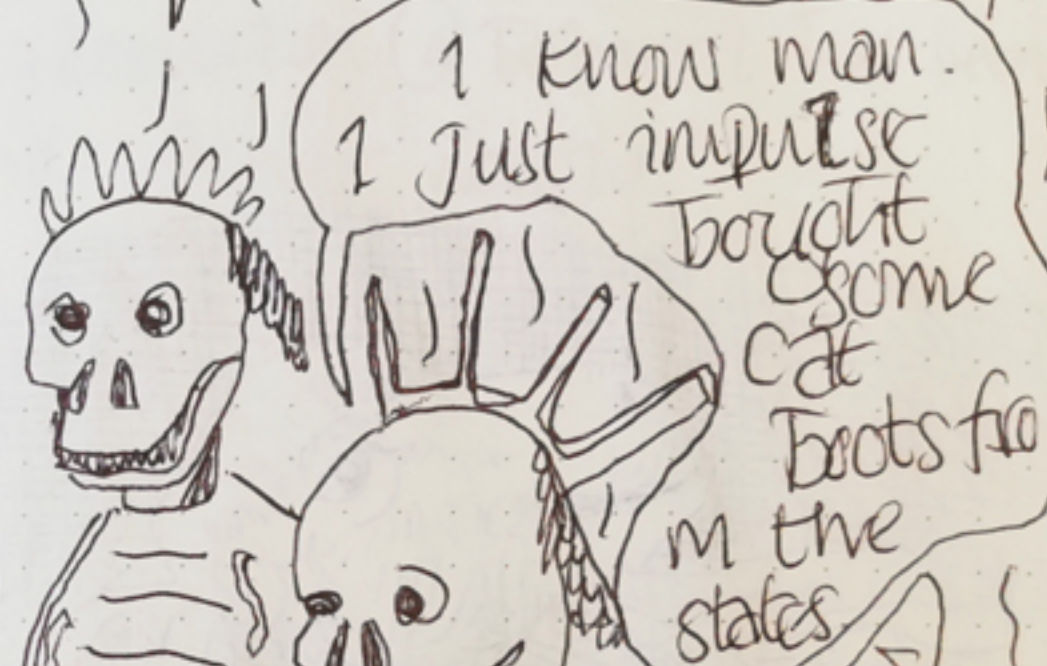 I know man.
I just impulse
bought
some
cat
boots fro
m the
states